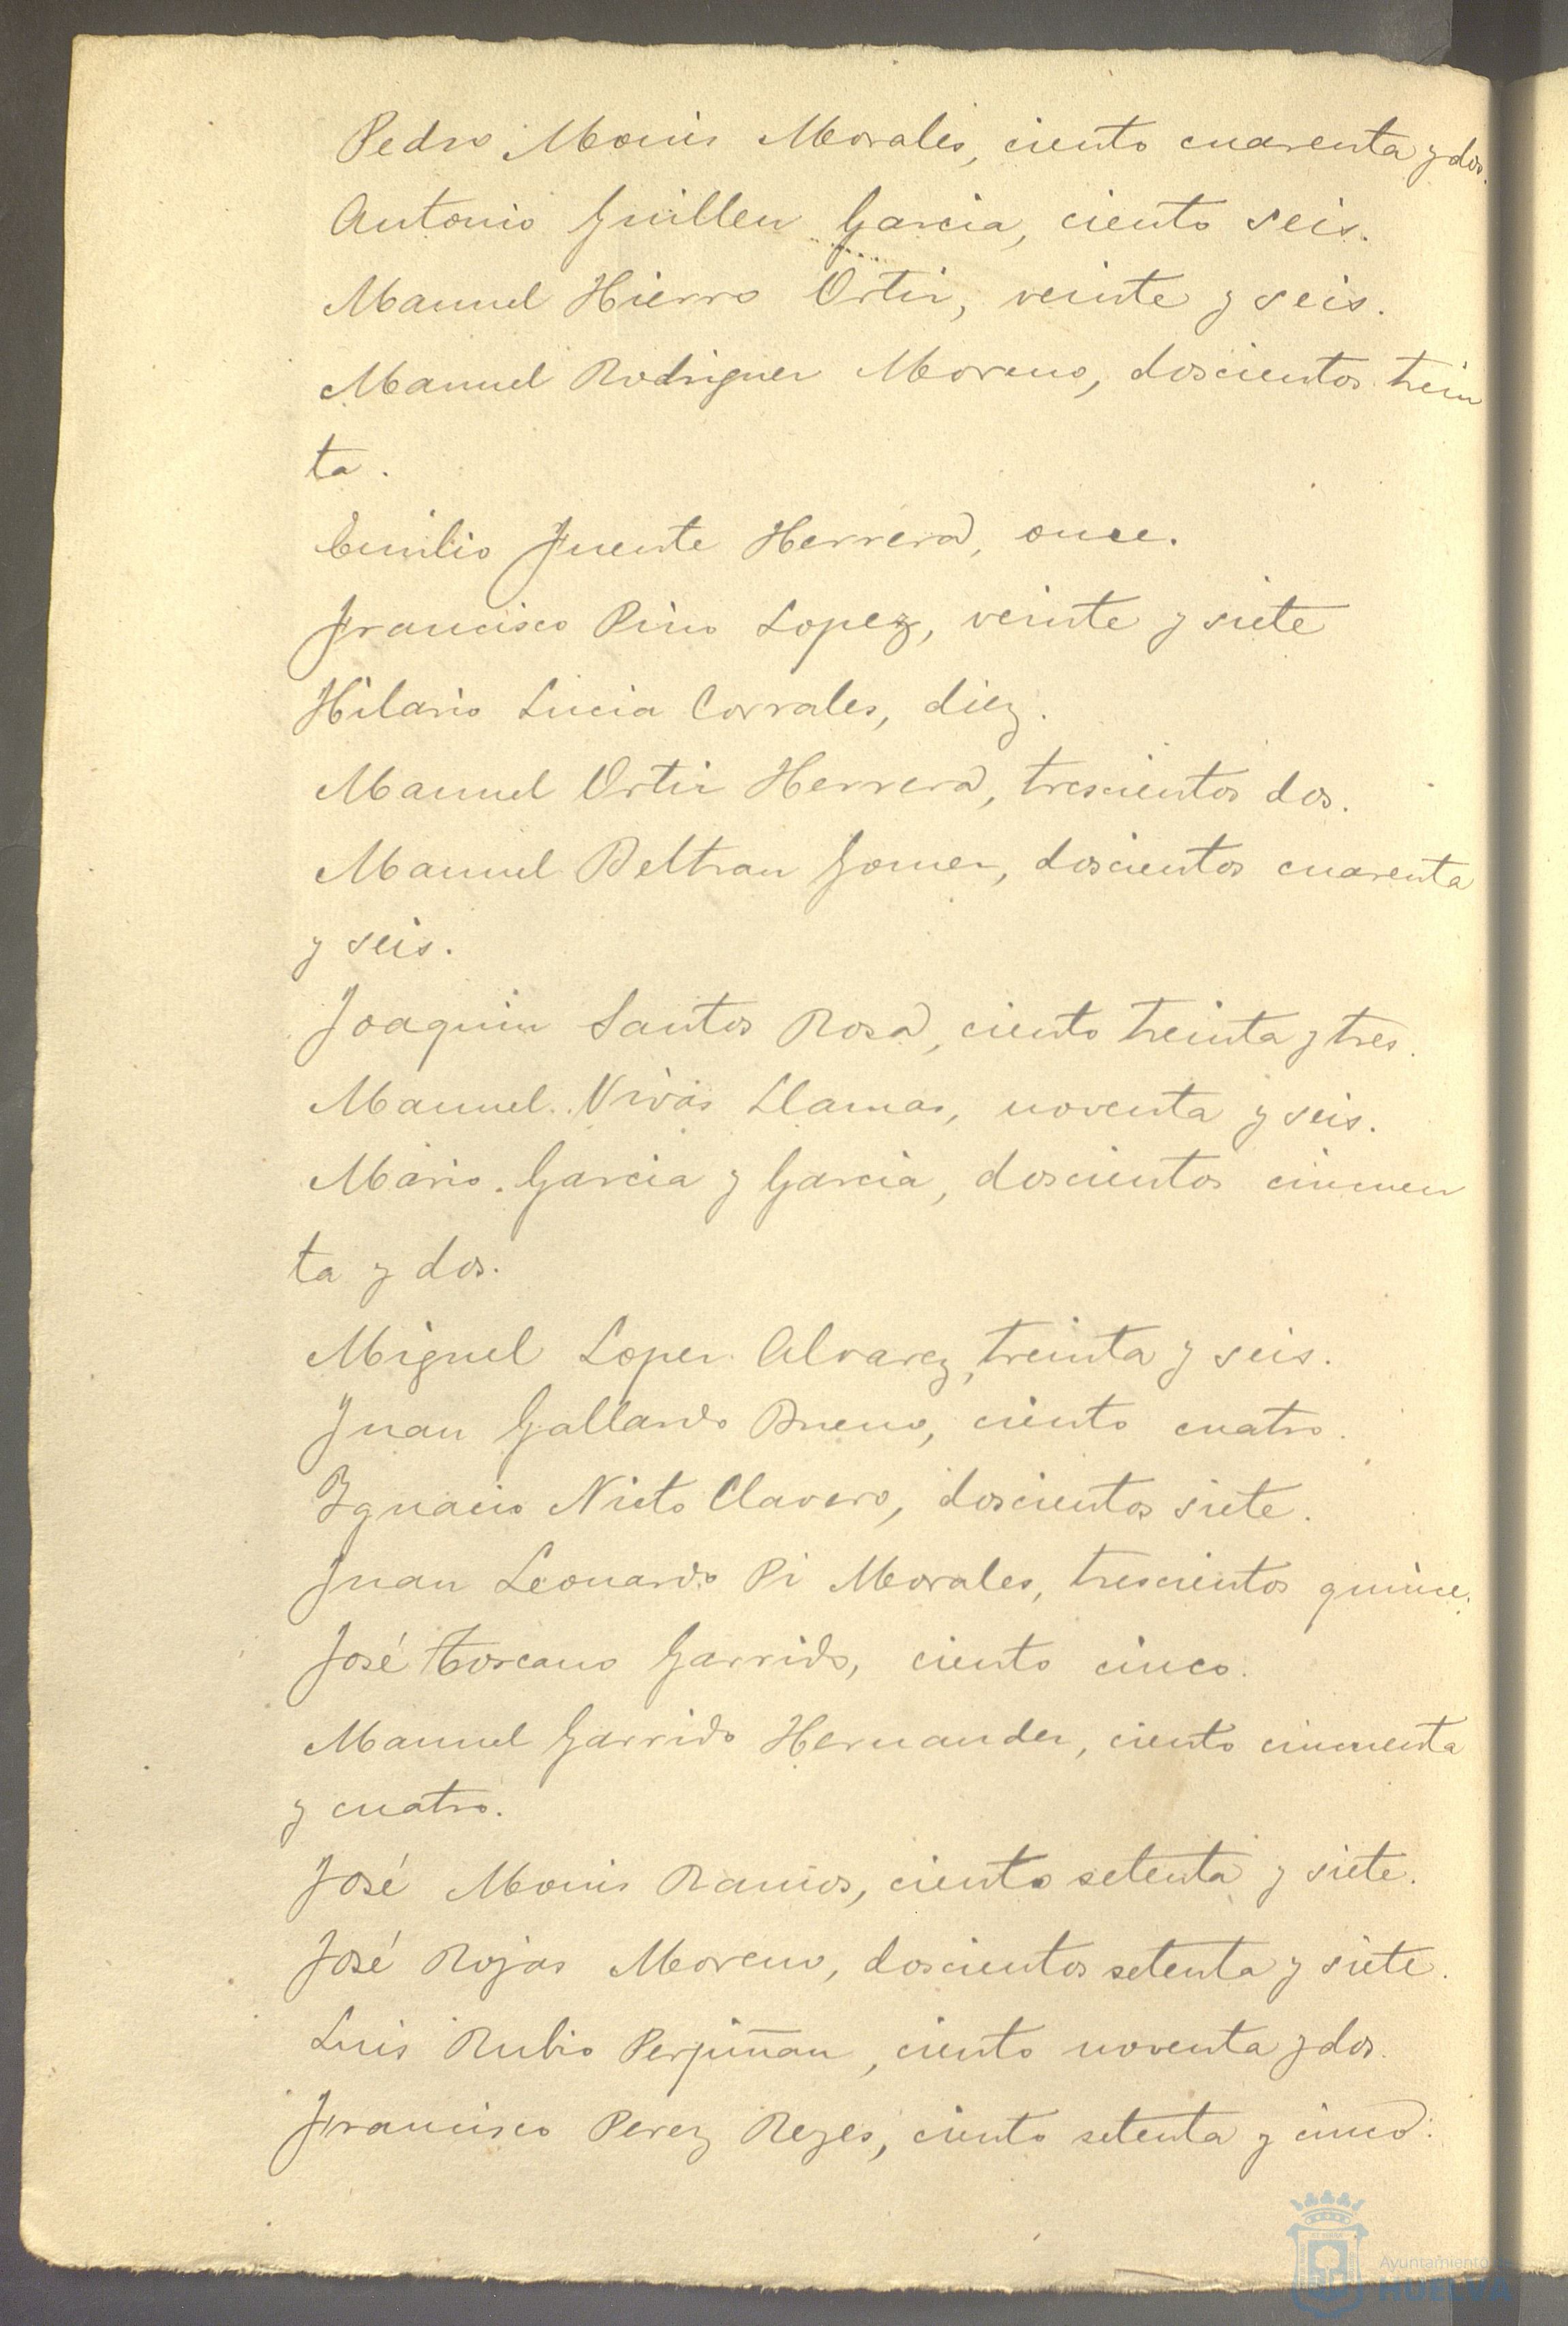 Pedro Monis Morales, ciento cuarenta y dos.
Antonio Guillen Garcia, ciento seis.
Manuel Hierro Ortiz, veinte y seis.
Manuel Rodriguez Moreno, doscientos trein
ta.
Emilio Fuente Herrera, once.
Francisco Pino Lopez, veinte y siete
Hilario Lucia Corrales, diez.
Manuel Ortiz Herrera, trescientos dos.
Manuel Beltran Gomez, doscientos cuarenta
y seis.
Joaquin Santos Rosa, ciento treinta y tres.
Manuel Vivas Llamas, noventa y seis.
Mario Garcia y Garcia, doscientos cincuen
ta y dos.
Miguel Lopez Alvarez, treinta y seis.
Juan Gallardo Bueno, ciento cuatro.
Ignacio Nieto Clavero, doscientos siete.
Juan Leonardo Pi Morales, trescientos quince.
José Toscano Garrido, ciento cinco.
Manuel Garrido Hernandez, ciento cincuenta
y cuatro.
José Monis Ramos, ciento setenta y siete.
José Rojas Moreno, doscientos setenta y siete.
Luis Rubio Perpiñan, ciento noventa y dos.
Francisco Perez Reyes, ciento setenta y cinco.
Ayuntamiento de
HUELVA